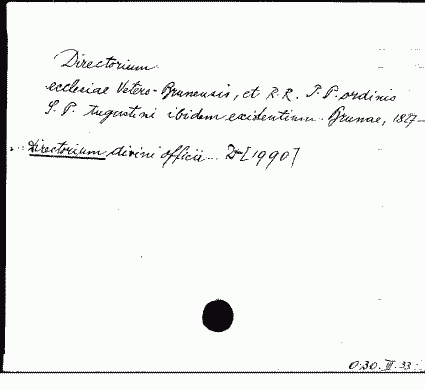 Directorium
ecclesiae Vetero-Brunensis, et R.R. P.P. ordinis
S. P. Augustini ibidem existentium. Brunae, 1827-
Directorium divini officii... [1990]
0.30.III.33.